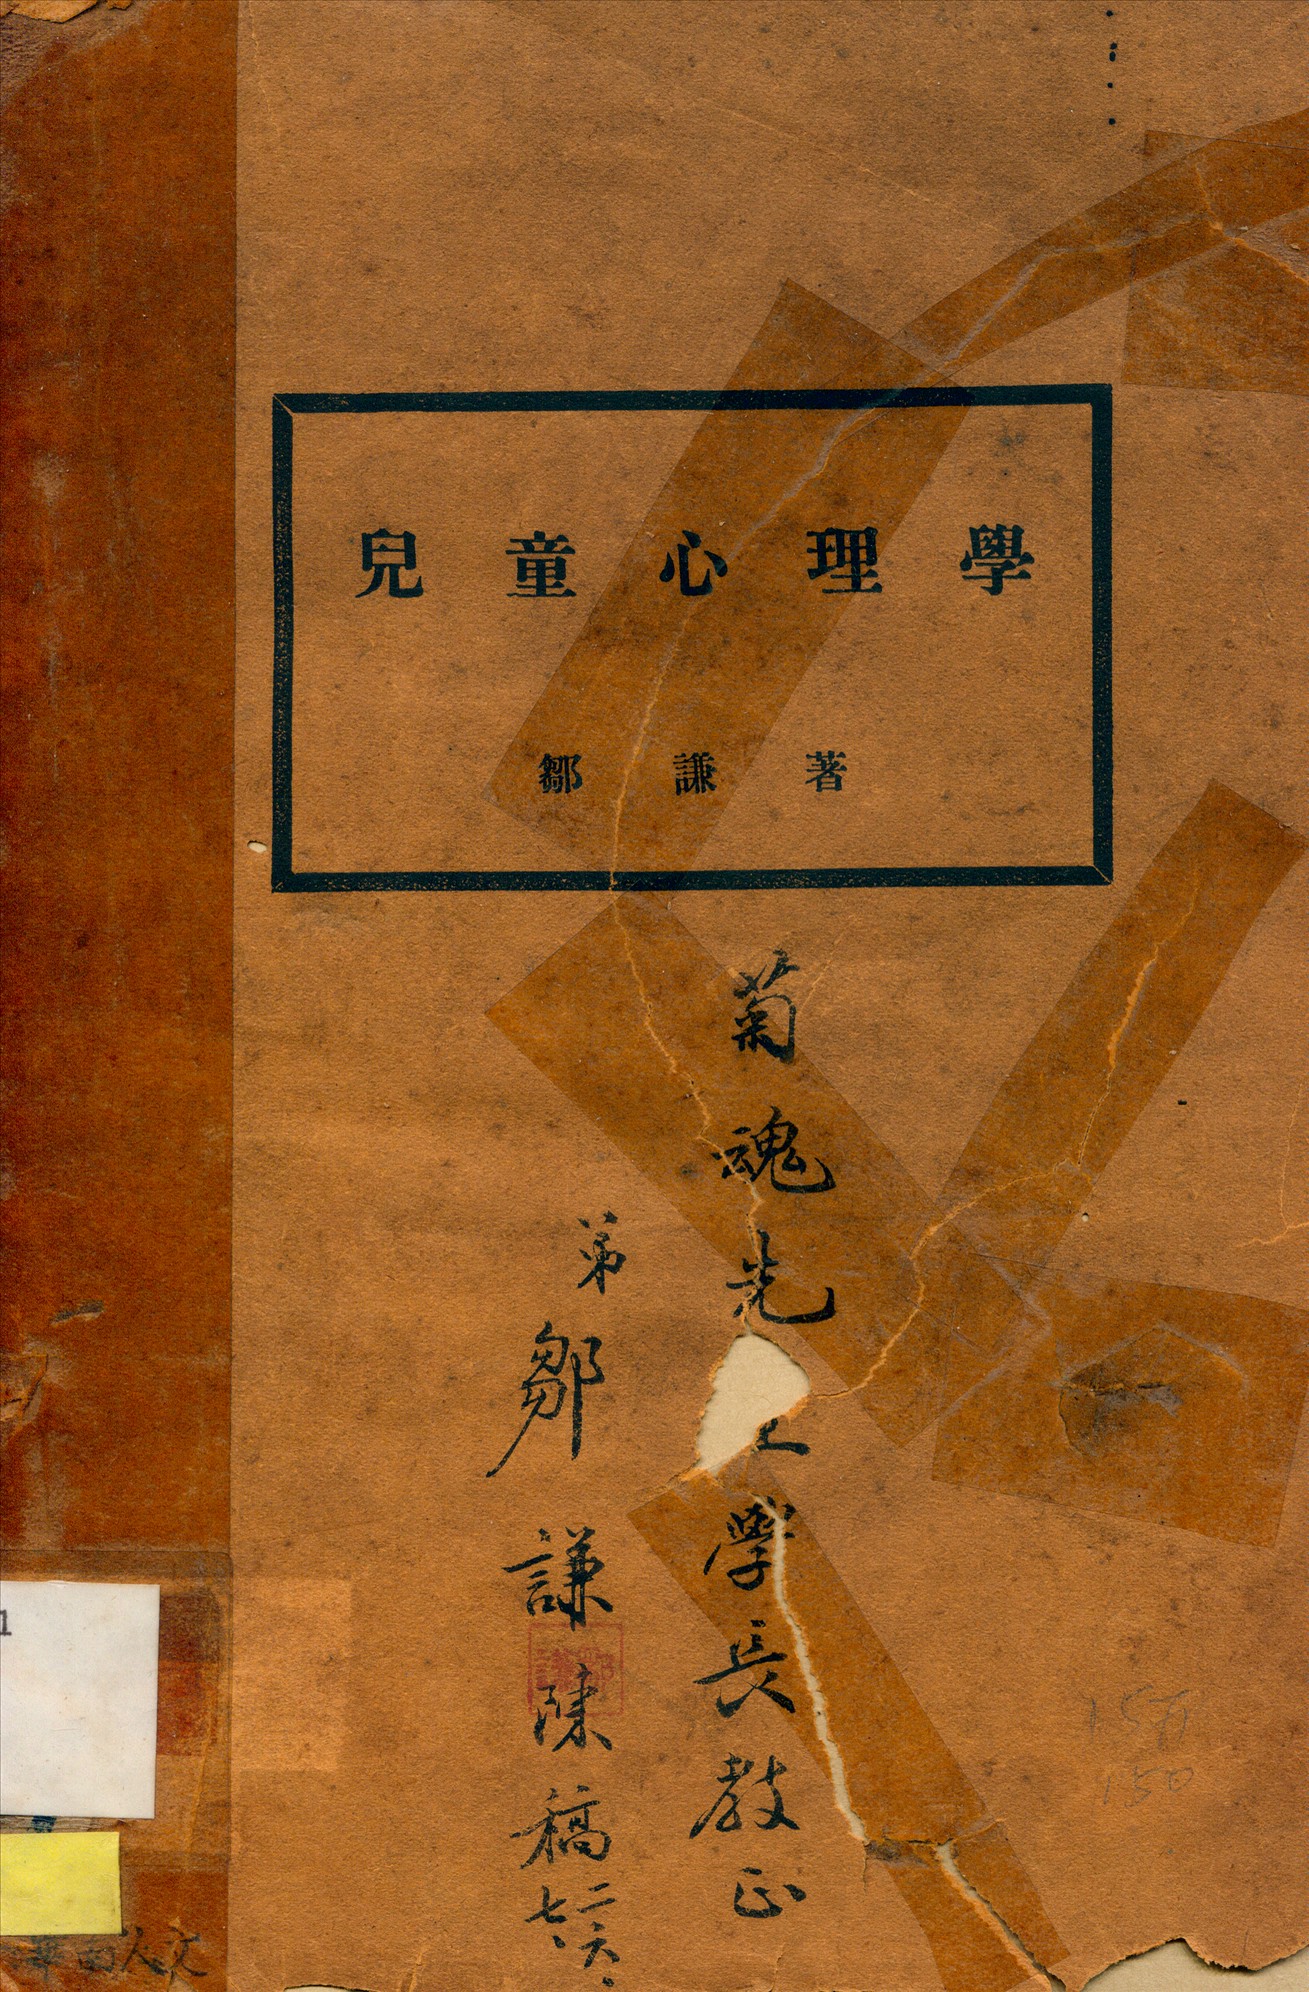 兒童心理學
鄒謙著
菊魂先
學長教正
弟鄒謙陳稿
二六、
七、
1
1.5
150